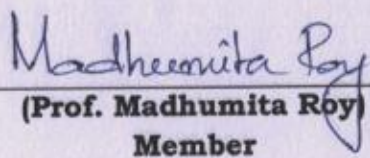 Madhumita Roy
(Prof. Madhumita Roy)
Member